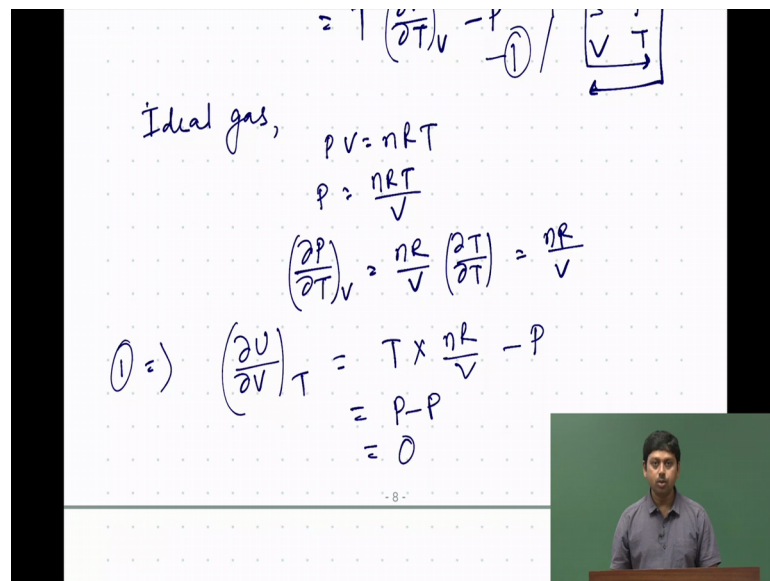 = T (∂P/∂T)V - P -①
V T
Ideal gas,
PV = nRT
P = nRT/V
(∂P/∂T)V = nR/V (∂T/∂T) = nR/V
① => (∂U/∂V)T = T × nR/V - P
= P-P
= 0
-8-